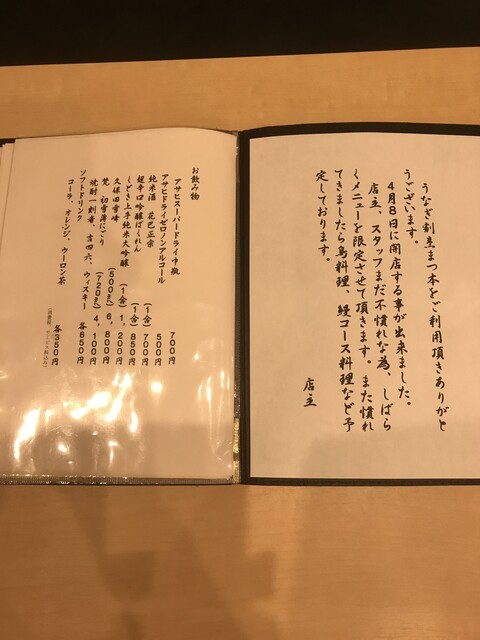 うなぎ割烹まつ本をご利用頂きありがと
うございます。
4月8日に開店する事が出来ました。
店主、スタッフまだ不慣れな為、しばら
くメニューを限定させて頂きます。また慣れ
てきましたら鳥料理、鰻コース料理など予
定しております。
店主
お飲み物
アサヒスーパードライ中瓶 700円
アサヒドライゼロノンアルコール 500円
純米酒 花巴正宗 (1合) 700円
超辛口吟醸ばくれん (1合) 850円
くどき上手純米大吟醸 (1合) 1,200円
久保田雪峰 (500㎖) 6,800円
梵 初雪薄にごり (720㎖) 4,100円
焼酎一刻者、吉四六、ウィスキー 各650円
ソフトドリンク
コーラ、オレンジ、ウーロン茶 各350円